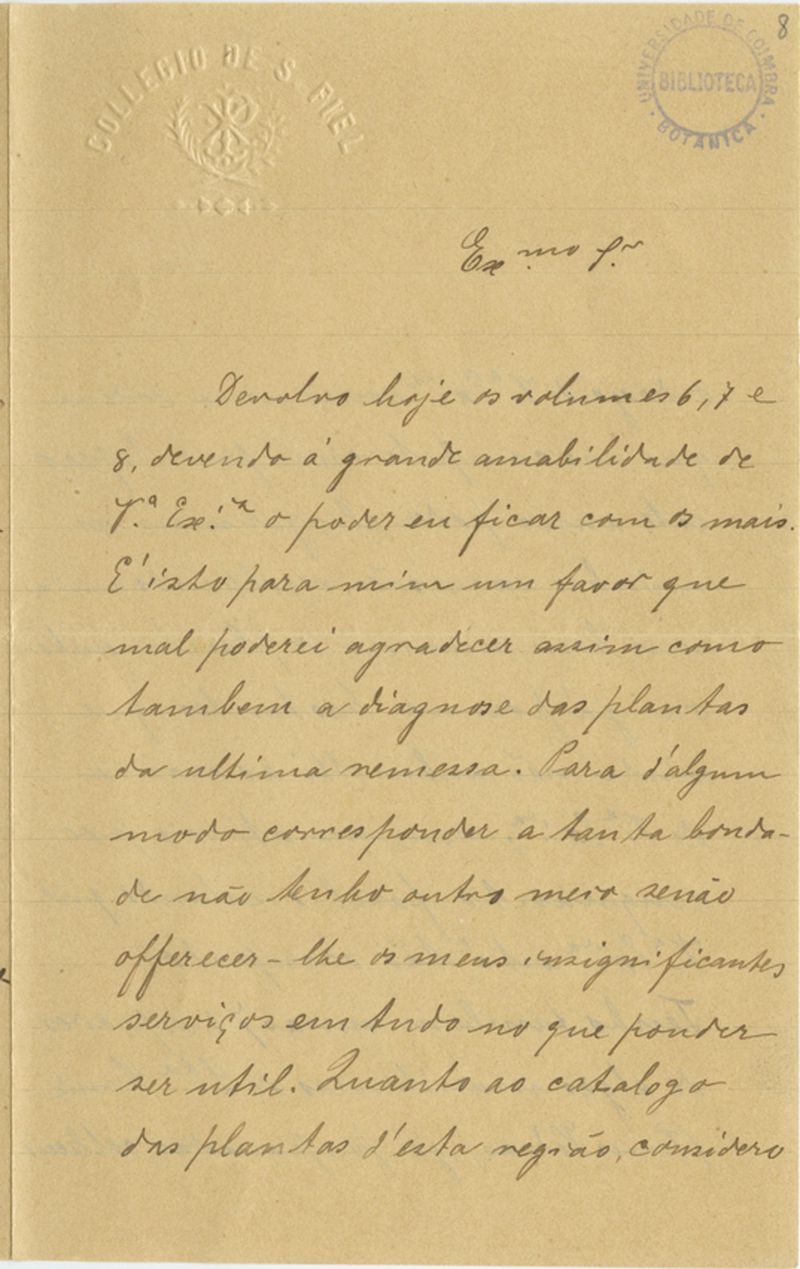 8
COLLEGIO DE S. FIEL
UNIVERSIDADE DE COIMBRA
BIBLIOTECA
BOTÂNICA
Ex.mo Sr.
Devolvo hoje os volumes 6, 7 e
8, devendo á grande amabilidade de
V.ª Ex.ª o poder eu ficar com os mais.
E' isto para mim um favor que
mal poderei agradecer assim como
tambem a diagnose das plantas
da ultima remessa. Para d'algum
modo corresponder a tanta bonda-
de não tenho outro meio senão
offerecer-lhe os meus insignificantes
serviços em tudo no que ponder
ser util. Quanto ao catalogo
das plantas d'esta região, considero